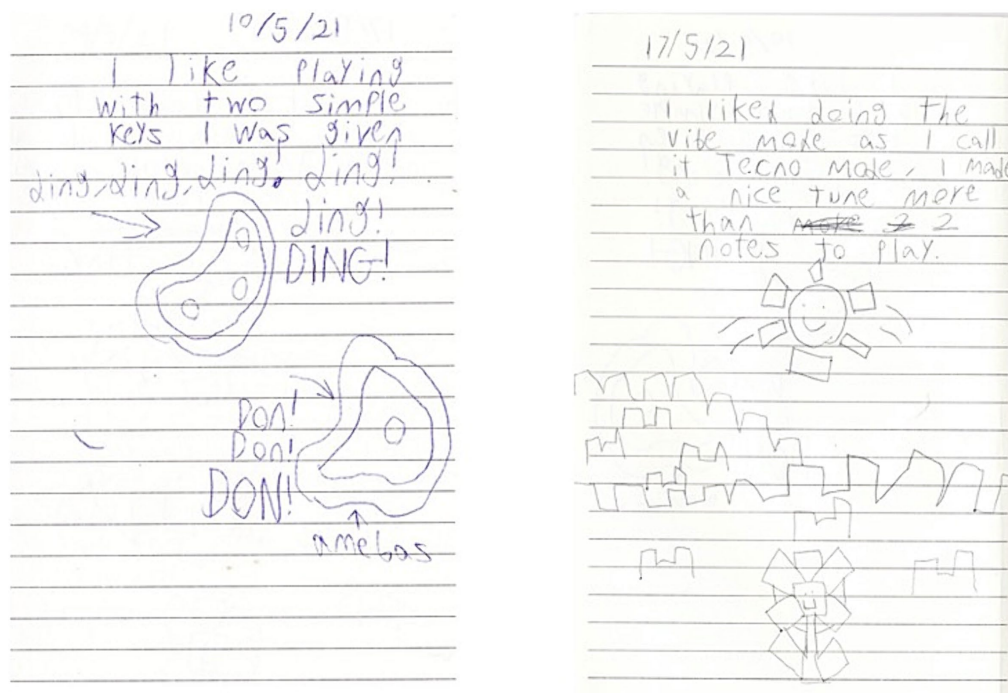 10/5/21
I like playing
with two simple
keys I was given
ding, ding, ding! ding!
ding!
DING!
DON!
Don!
DON!
amebas
17/5/21
I liked doing the
vibe mode as I call
it Tecno mode, I made
a nice tune more
than 2
notes to play.